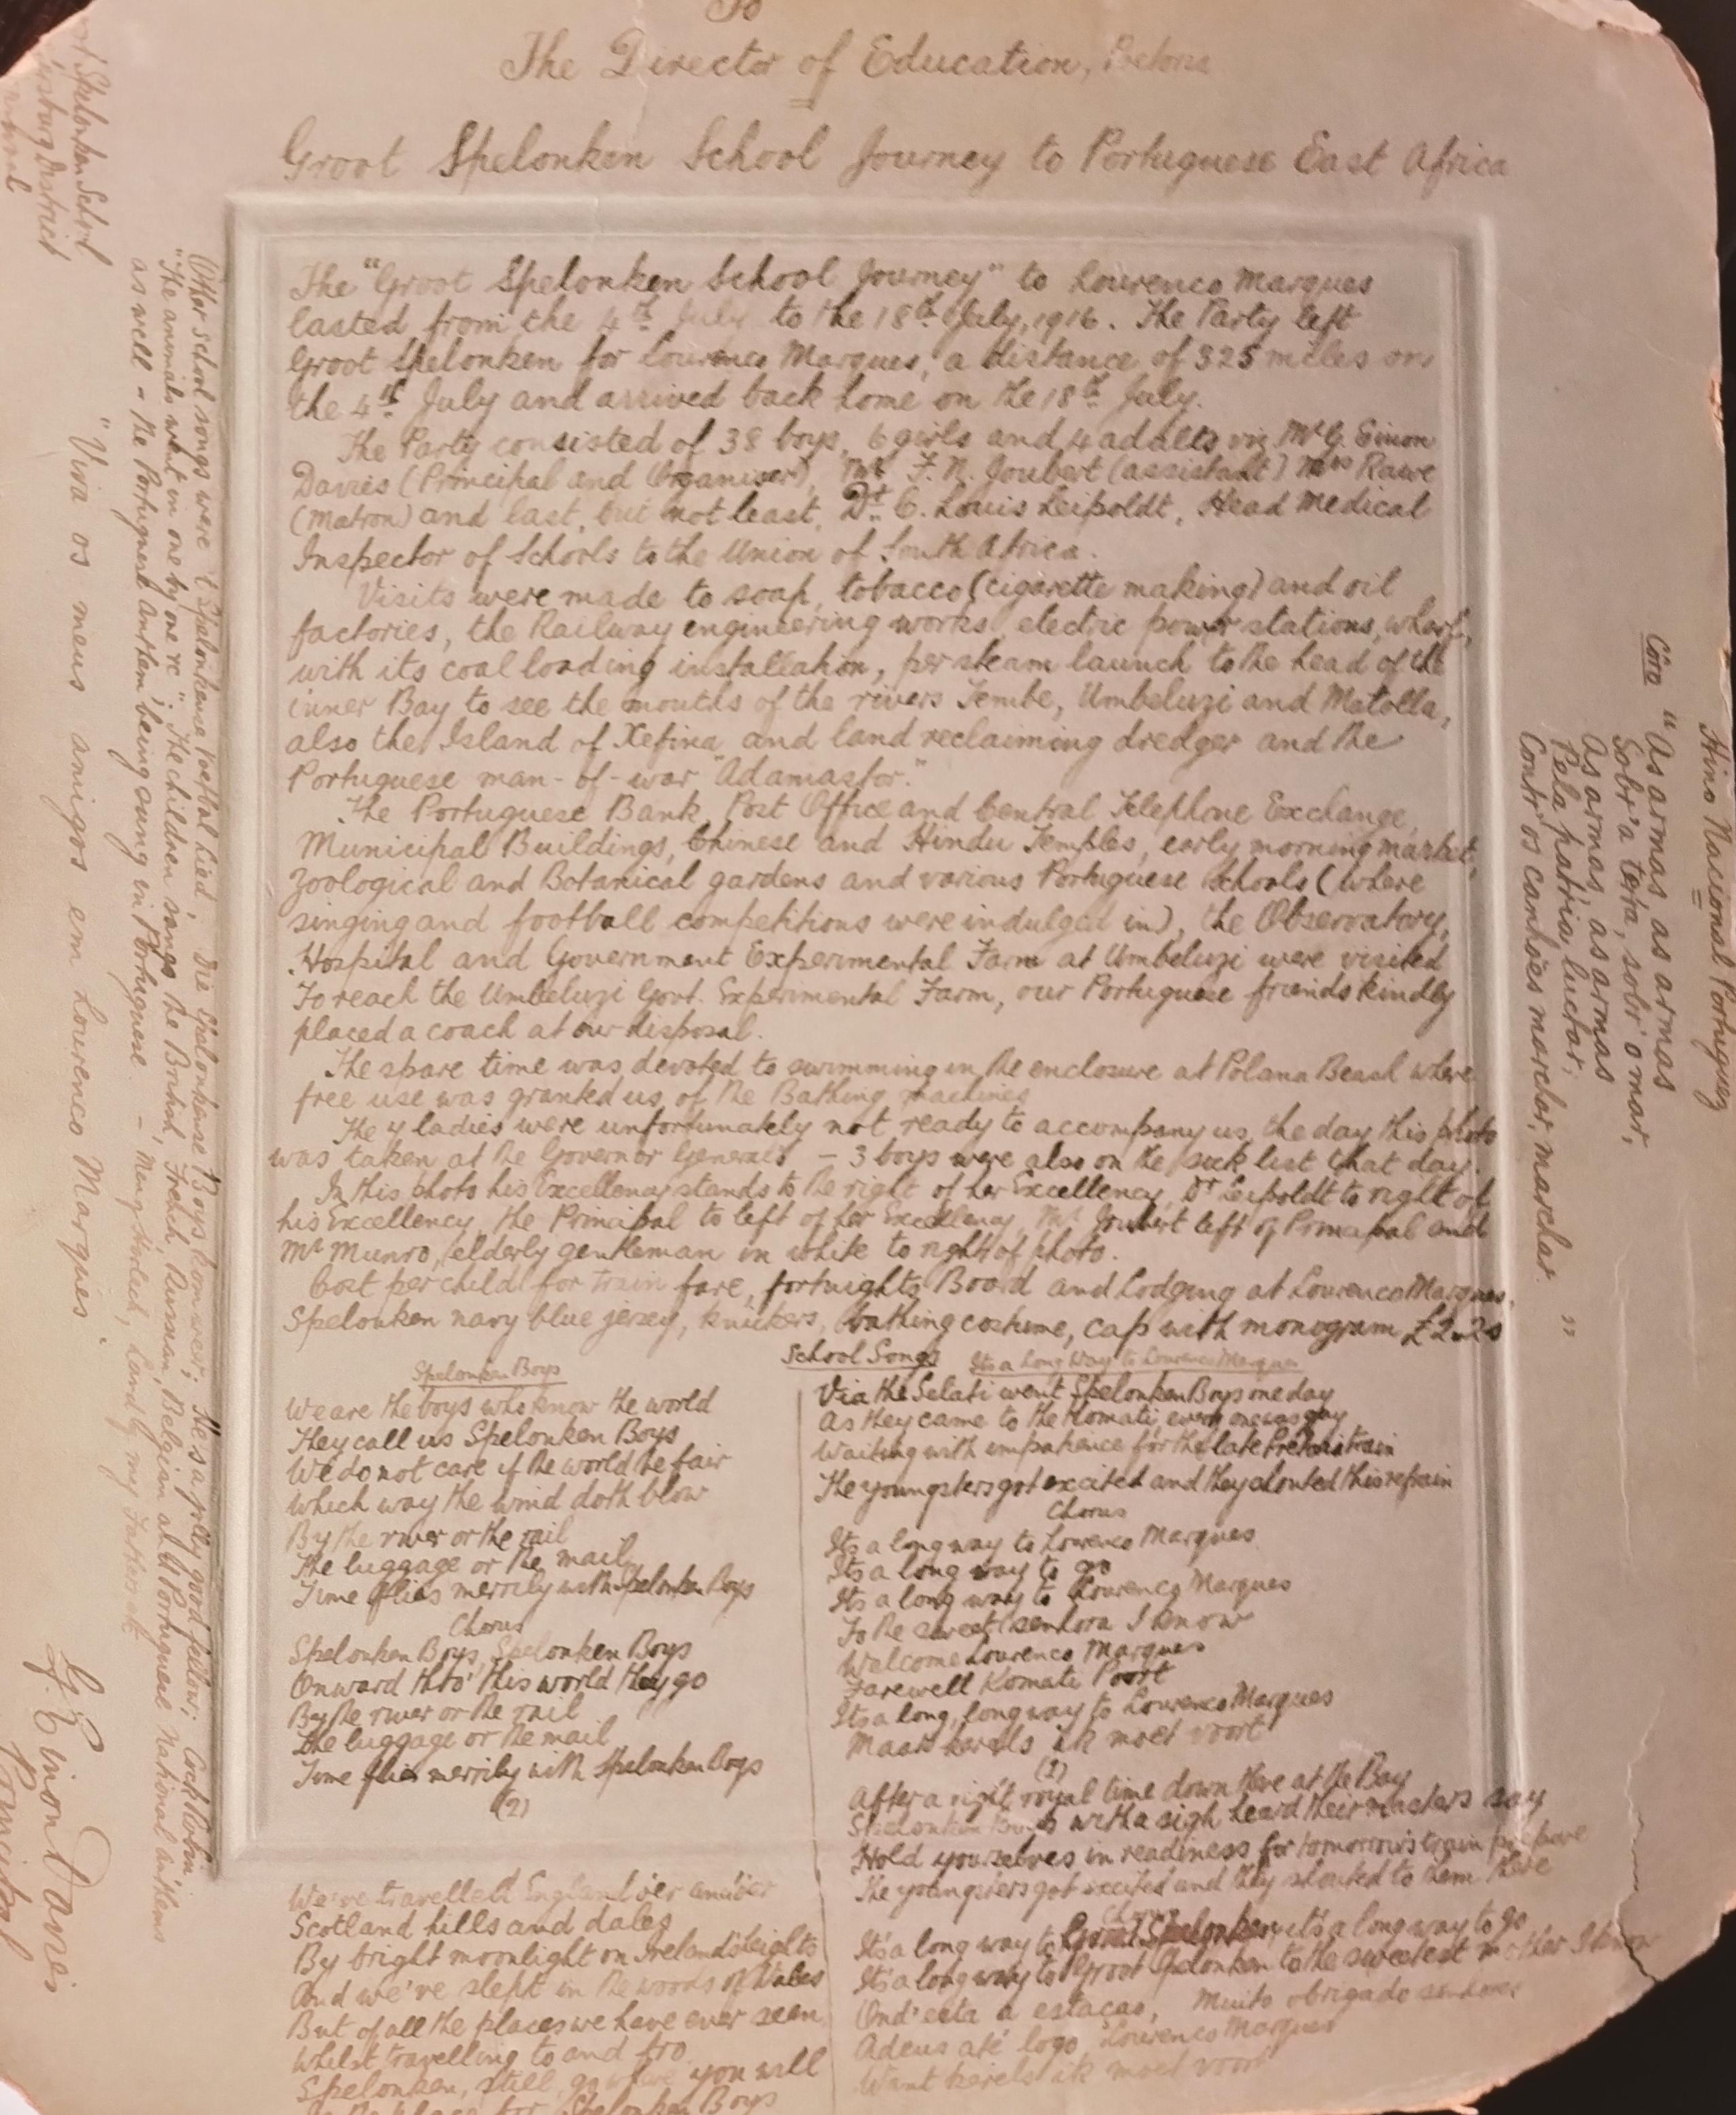 To
The Director of Education,
Groot Spelonken School Journey to Portuguese East Africa
The "Groot Spelonken School Journey" to Lourenco Marques
lasted from the 4th July to the 18th July, 1916. The Party left
Groot Spelonken for Lourenco Marques, a distance of 325 miles on
the 4th July and arrived back home on the 18th July.
The Party consisted of 38 boys, 6 girls and 4 adults viz Mr G. Einon
Davies (Principal and Organiser), Mr F. N. Joubert (assistant) Mrs Rawe
(Matron) and last, but not least, Dr C. Louis Leipoldt, Head Medical
Inspector of Schools to the Union of South Africa.
Visits were made to soap, tobacco (cigarette making) and oil
factories, the Railway engineering works, electric power stations, wharf,
with its coal loading installation, per steam launch to the head of the
inner Bay to see the mouths of the rivers Tembe, Umbeluzi and Matolla,
also the Island of Xefina and land reclaiming dredger and the
Portuguese man-of-war "Adamastor."
The Portuguese Bank, Post Office and Central Telephone Exchange,
Municipal Buildings, Chinese and Hindu Temples, early morning market,
Zoological and Botanical gardens and various Portuguese Schools (where
singing and football competitions were indulged in), the Observatory,
Hospital and Government Experimental Farm at Umbeluzi were visited
To reach the Umbeluzi Govt. Experimental Farm, our Portuguese friends kindly
placed a coach at our disposal.
The spare time was devoted to swimming in the enclosure at Polana Beach where
free use was granted us of the Bathing machines
The 7 ladies were unfortunately not ready to accompany us, the day this photo
was taken at the Governor Generals - 3 boys were also on the sick list that day.
In this photo his Excellency stands to the right of her Excellency, Dr Leipoldt to right of
his Excellency, the Principal to left of her Excellency, Mr Joubert left of Principal and
Mr Munro, elderly gentleman in white to right of photo.
Cost per child for train fare, fortnights Board and Lodging at Lourenco Marques,
Spelonken navy blue jersey, knickers, bathing costume, cap with monogram £2.2s
School Songs
Spelonken Boys
We are the boys who know the world
They call us Spelonken Boys
We do not care if the world be fair
Which way the wind doth blow
By the river or the rail
The luggage or the mail
Time flies merrily with Spelonken Boys
Chorus
Spelonken Boys, Spelonken Boys
Onward thro' this world they go
By the river or the rail
The luggage or the mail
Time flies merrily with Spelonken Boys
(2)
We've travelled England o'er and o'er
Scotland hills and dales
By bright moonlight on Ireland's heights
And we've slept in the woods of Wales
But of all the places we have ever seen
Whilst travelling to and fro
Spelonken, still, go where you will
Spelonken Boys
Its a Long Way to Lourenco Marques
Via the Selati went Spelonken Boys one day
As they came to the Komati, every one was gay
Waiting with impatience for the late Pretoria train
The youngsters got excited and they shouted this refrain
Chorus
Its a long way to Lourenco Marques
Its a long way to go
Its a long way to Lourenco Marques
To the sweet senhora I know
Welcome Lourenco Marques
Farewell Komati Poort
Its a long, long way to Lourenco Marques
Maar kerels ik moet voort
(2)
After a right royal time down there at the Bay
Spelonken Boys with a sigh heard their masters say
Hold yourselves in readiness for tomorrow's train prepare
The youngsters got excited and they shouted to them there
Chorus
It's a long way to Groot Spelonken, it's a long way to go
It's a long way to Groot Spelonken to the sweetest mother I know
Ond'esta a estaçao, Muito obrigado senhores
Adeus até logo Lourenco Marques
Want kerels ik moet voort
Hino Nacional Portuguez
Côro "As armas, as armas
Sobr'a terra, sobr' o mar,
As armas, as armas
Pela patria luctar;
Contr'os canhões marchar, marchar. "
Other school songs were 't Spelonkense Voetbal Lied, Die Spelonkense Boys kom weer; He's a jolly good fellow; Cock Robin
"The animals went in one by one &c". The children sang the British, French, Russian, Belgian and Portuguese National Anthems
as well - the Portuguese Anthem being sung in Portuguese - Meng Harlech, Land of my Fathers etc
"Viva os meus amigos em Lourenco Marques".
G. Einon Davies
Principal
Spelonken School
District